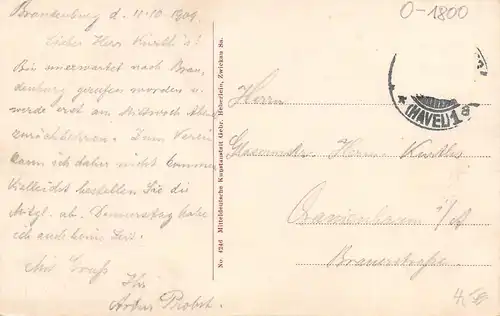 Brandenburg d. 11.10.1909.
Lieber Herr Kurth's!
Bin unerwartet nach Bran-
denburg gerufen worden u.
werde erst am Mittwoch Abend
zurückkehren. Zum Verein
kann ich daher nicht kommen
Vielleicht bestellen Sie die
Mitgl. ab. Donnerstag habe
ich auch keine Zeit.
Mit Gruß
Ihr
Artur Probst.
No. 4246 Mitteldeutsche Kunstanstalt Gebr. Heberlein, Zwickau Sa.
O-1800
(HAVEL) 1
Herrn
Glasermstr. Herrn Kurths
Oranienbaum i/A
Brauerstraße